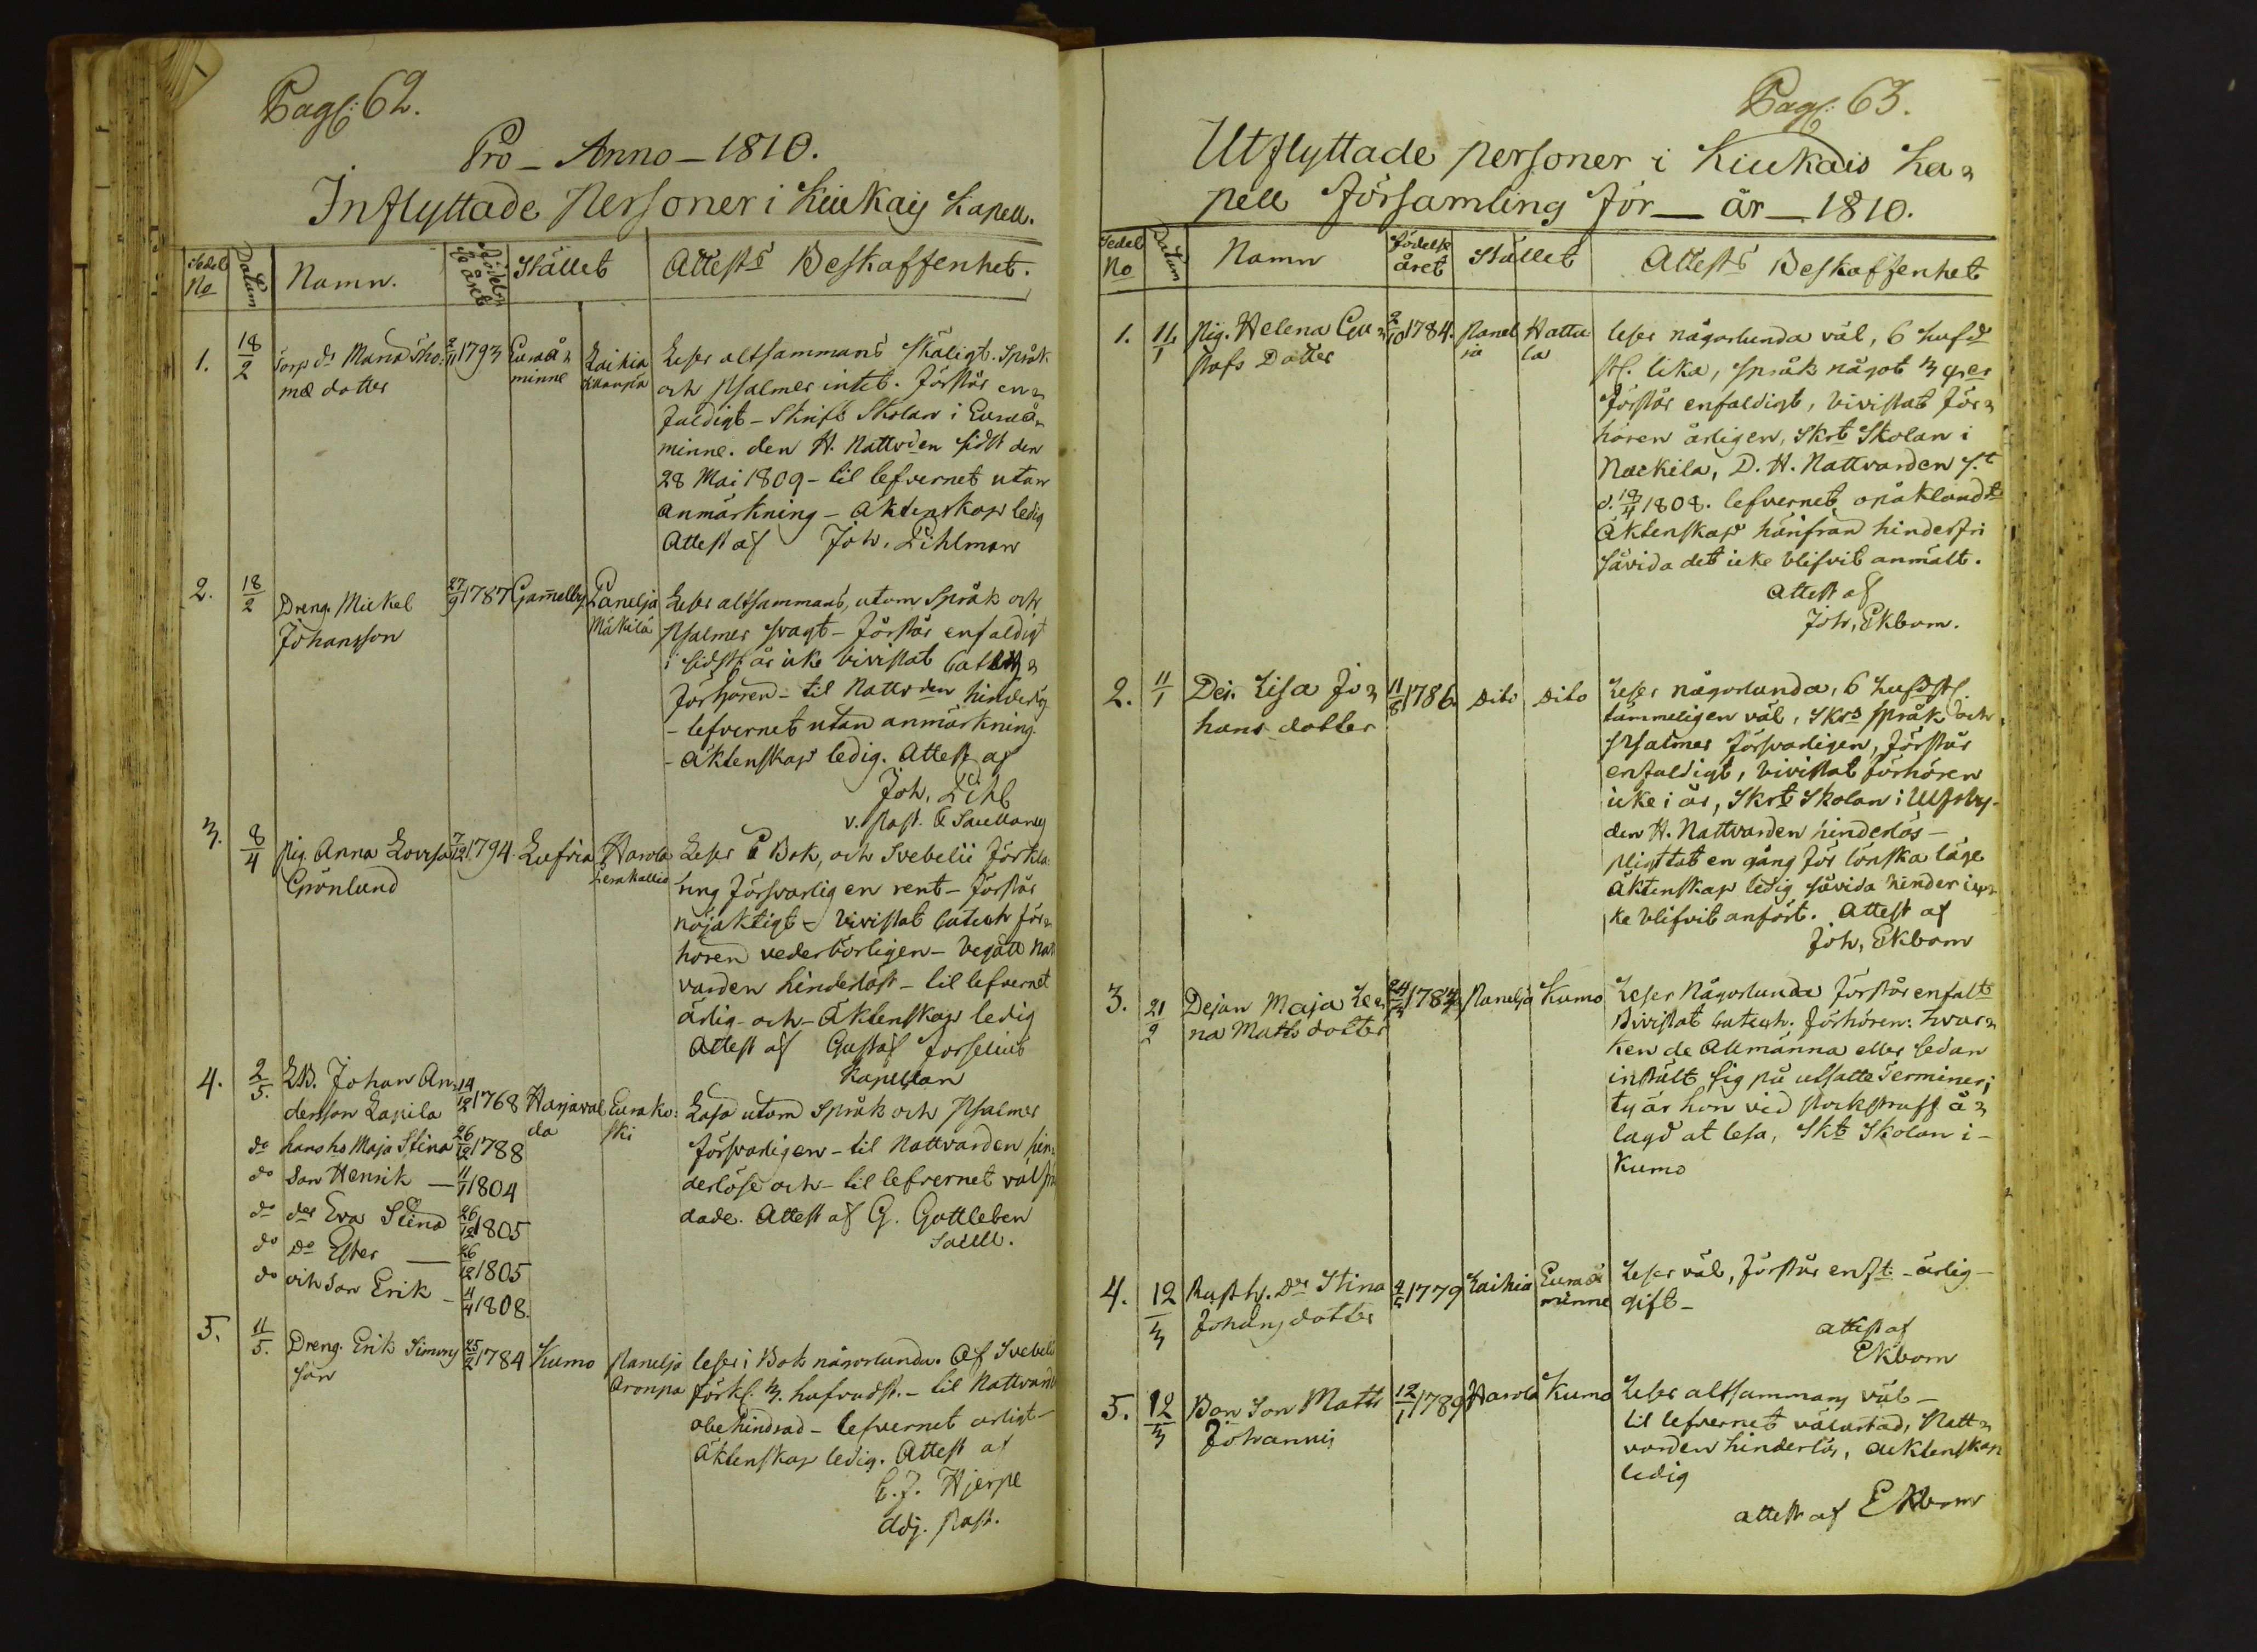 Pag: 62.
Pro – Anno – 1810.
Inflyttade Personer i Kiukais Kapell.
Sedel No
Datum
Namn.
Födelse året
Stället
Attests Beskaffenhet.
1.
18/2
Torp dr Maria Tho:
mæ dotter
2/11 1793
Euraå
minne
Laihia
Knaapia
Läser altsammans skäligt. Språk
och Psalmer intet. Förstår en
faldigt – Skrift Skolan i Euraå
minne. den H. Nattvden sidst den
28 Mai 1809 – til lefvernet utan
anmärkning – Äktenskap ledig
Attest af Joh. Lihlman
2.
18/2
Dreng. Mickel
Johansson
27/9 1787
Gammelby
Panelja
Mäkilä
Läser altsammans, utom Språk och
Psalmer svagt – förstår enfaldigt
i sidst år icke bivistat
förhören – til Nattvden hinderlös
– lefvernet utan anmärkning.
– Äktenskap ledig. Attest af
Joh. Lihl
v. Past.
3.
8/4
Pig. Anna Lovisa
Grönlund
7/12 1794
Lufvia
Harola
Läser i Bok, och Svebelii förkla:
ring försvarligen rent – förstår
nöjaktigt – bivistat Catech för
hören vederbörligen – begått Nat
varden hinderlöst – til lefvernet
ärlig – och – Äktenskap ledig
Attest af Gustaf Forselius
Kapellan
4.
2/5.
LB. Johan An
dersson Lapila
14/12 1768
Harjaval
da
Eura ko:
ski
Läsa utom Språk och Psalmer
försvarligen – til Nattvarden hin
derlöse och – til lefvernet väl frä
dade. Attest af G. Gottleben
Sacell.
do hans hu Maja Stina 26/12 1788
do Son Henrik — 11/1 1804
do der Eva Stina 26/12 1805
do do Ester — 26/12 1805
do och Son Erik – 4/4 1808.
5.
11/5.
Dreng. Erik Simons
Son
25/2 1784
Kumo
Panelja
Aronpa
läser i Bok någorlunda. Af Svebelii
förkl: 3. hufvudst. – til Nattvard
obehindrad – lefvernet ärligt –
Äktenskap ledig. Attest af
C. J. Hjerpe
Adj. Past.
Pag: 63.
Utflyttade personer i Kiukais Ka
pell Församling för — år — 1810.
Sedel No
Datum
Namn
Födelse
året
Stället
Attests Beskaffenhet
1.
11/1
Pig. Helena Gu
stafs Dotter
2/10 1784.
Panel
ja
Hattu
la
läser någorlunda väl, 6 hufd
st. lika, språk något
förstår enfaldigt, bivistat för
hören årligen, Skrt Skolan i
Nackila, D. H. Nattvarden s.t
d. 18/4 1808. lefvernet oplåklandt
Äktenskap härifrån hinderfri
såvida det icke blifvit anmält.
Attest af
Joh, Ekbom.
2.
11/1
Dei. Lisa Jo
hans dotter
11/8 1786
dito
dito
Läser någorlunda, 6 hufdst.
tämmeligen väl, Skrs Språk och
Psalmer försvarligen, förstår
enfaldigt, bivistat förhören
icke i år, Skrt Skolan i Ulfsby.
den H. Nattvarden hinderlös –
pligtat en gång för lönska läge
Äktenskap ledig såvida hinder ic
ke blifvit anfört. Attest af
Joh, Ekbom
3.
21/2
Dejan Maja Lee
na Matts dotter
Panelja
Kumo
Läser Någorlunda förstår enfalt
Bivistat Catech. förhören: hvar
ken de Allmänna eller sedan
instält sig på utsatte Terminer;
ty är hon vid stockstraff å
lagd at läsa, Skt Skolan i –
Kumo
4.
12/3
Rusth. Dr Stina
Johans dotter
4/5 1779
Laihia
Euraå
minne
Läser väl, förstår enft – ärlig –
gift –
attest af
Ekbom
5.
12/3
Bon Son Matts
Johannis
12/1 1789
Harola
Kumo
Läser altsammans väl –
til lefvernet välartad, Natt
varden hinderlös, äcktenskap
ledig
attest af Ekbom